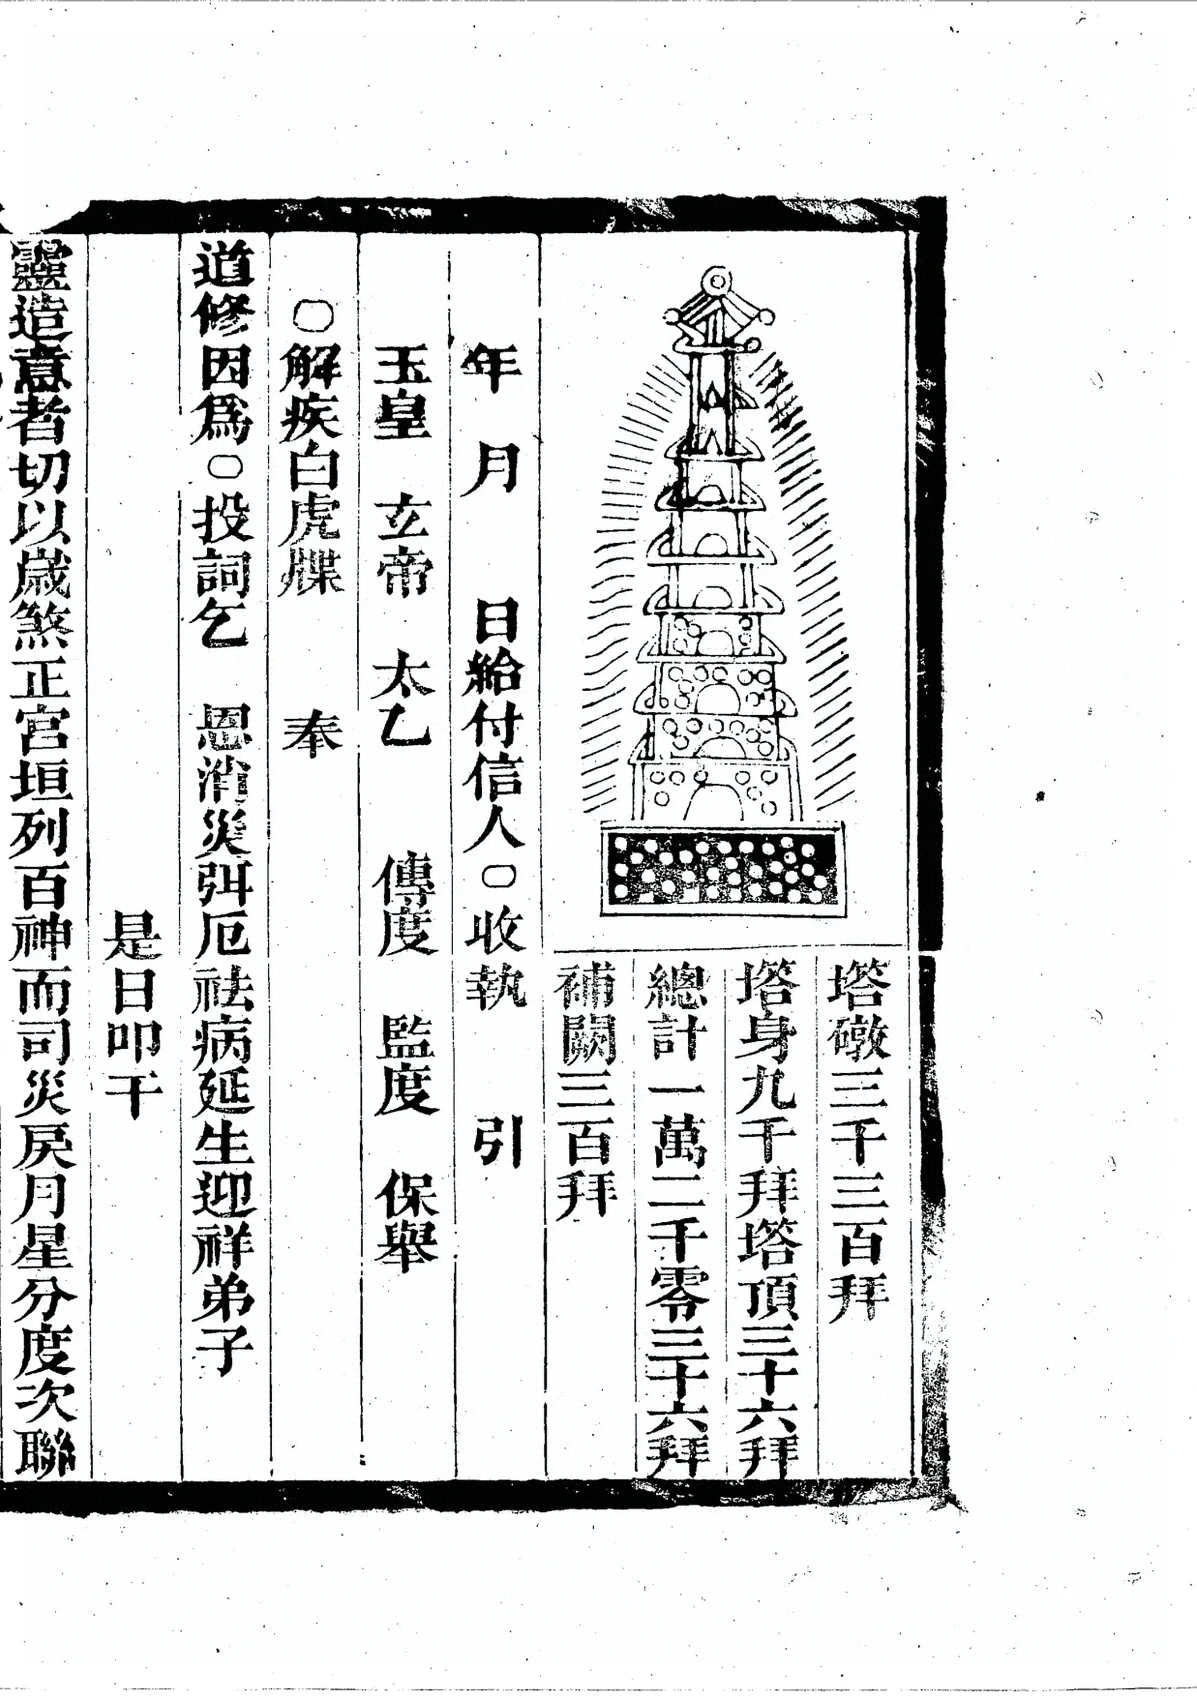 塔磝三千三百拜
塔身九千拜塔頂三十六拜
總計一萬二千零三十六拜
補闕三百拜
年 月 日給付信人〇收執 引
玉皇 玄帝 太乙 傳度 監度 保舉
〇解疾白虎牒 奉
道修因爲〇投詞乞 恩消災弭厄祛病延生迎祥弟子
是日叩干
靈造意者切以歲煞正宮垣列百神而司災戾月星分度次聯